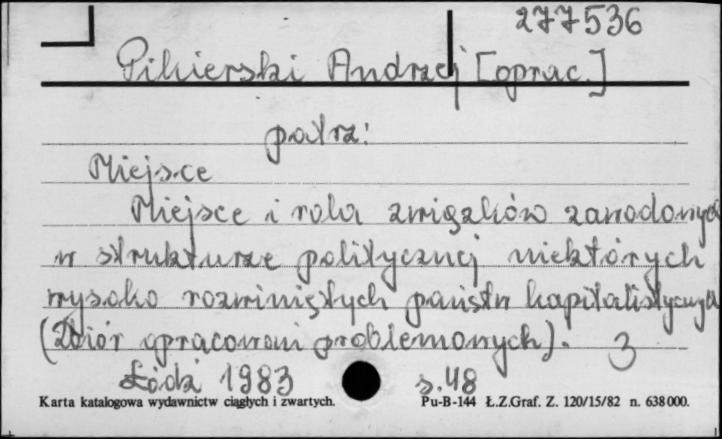 277536
Pikierski Andrzej [oprac.]
patrz:
Miejsce
Miejsce i rola związków zawodowych
w strukturze politycznej niektórych
wysoko rozwiniętych państw kapitalistycznych
(Zbiór opracowań problemowych). 3
Łódź 1983 s. 48
Karta katalogowa wydawnictw ciągłych i zwartych. Pu-B-144 Ł.Z.Graf. Z. 120/15/82 n. 638000.